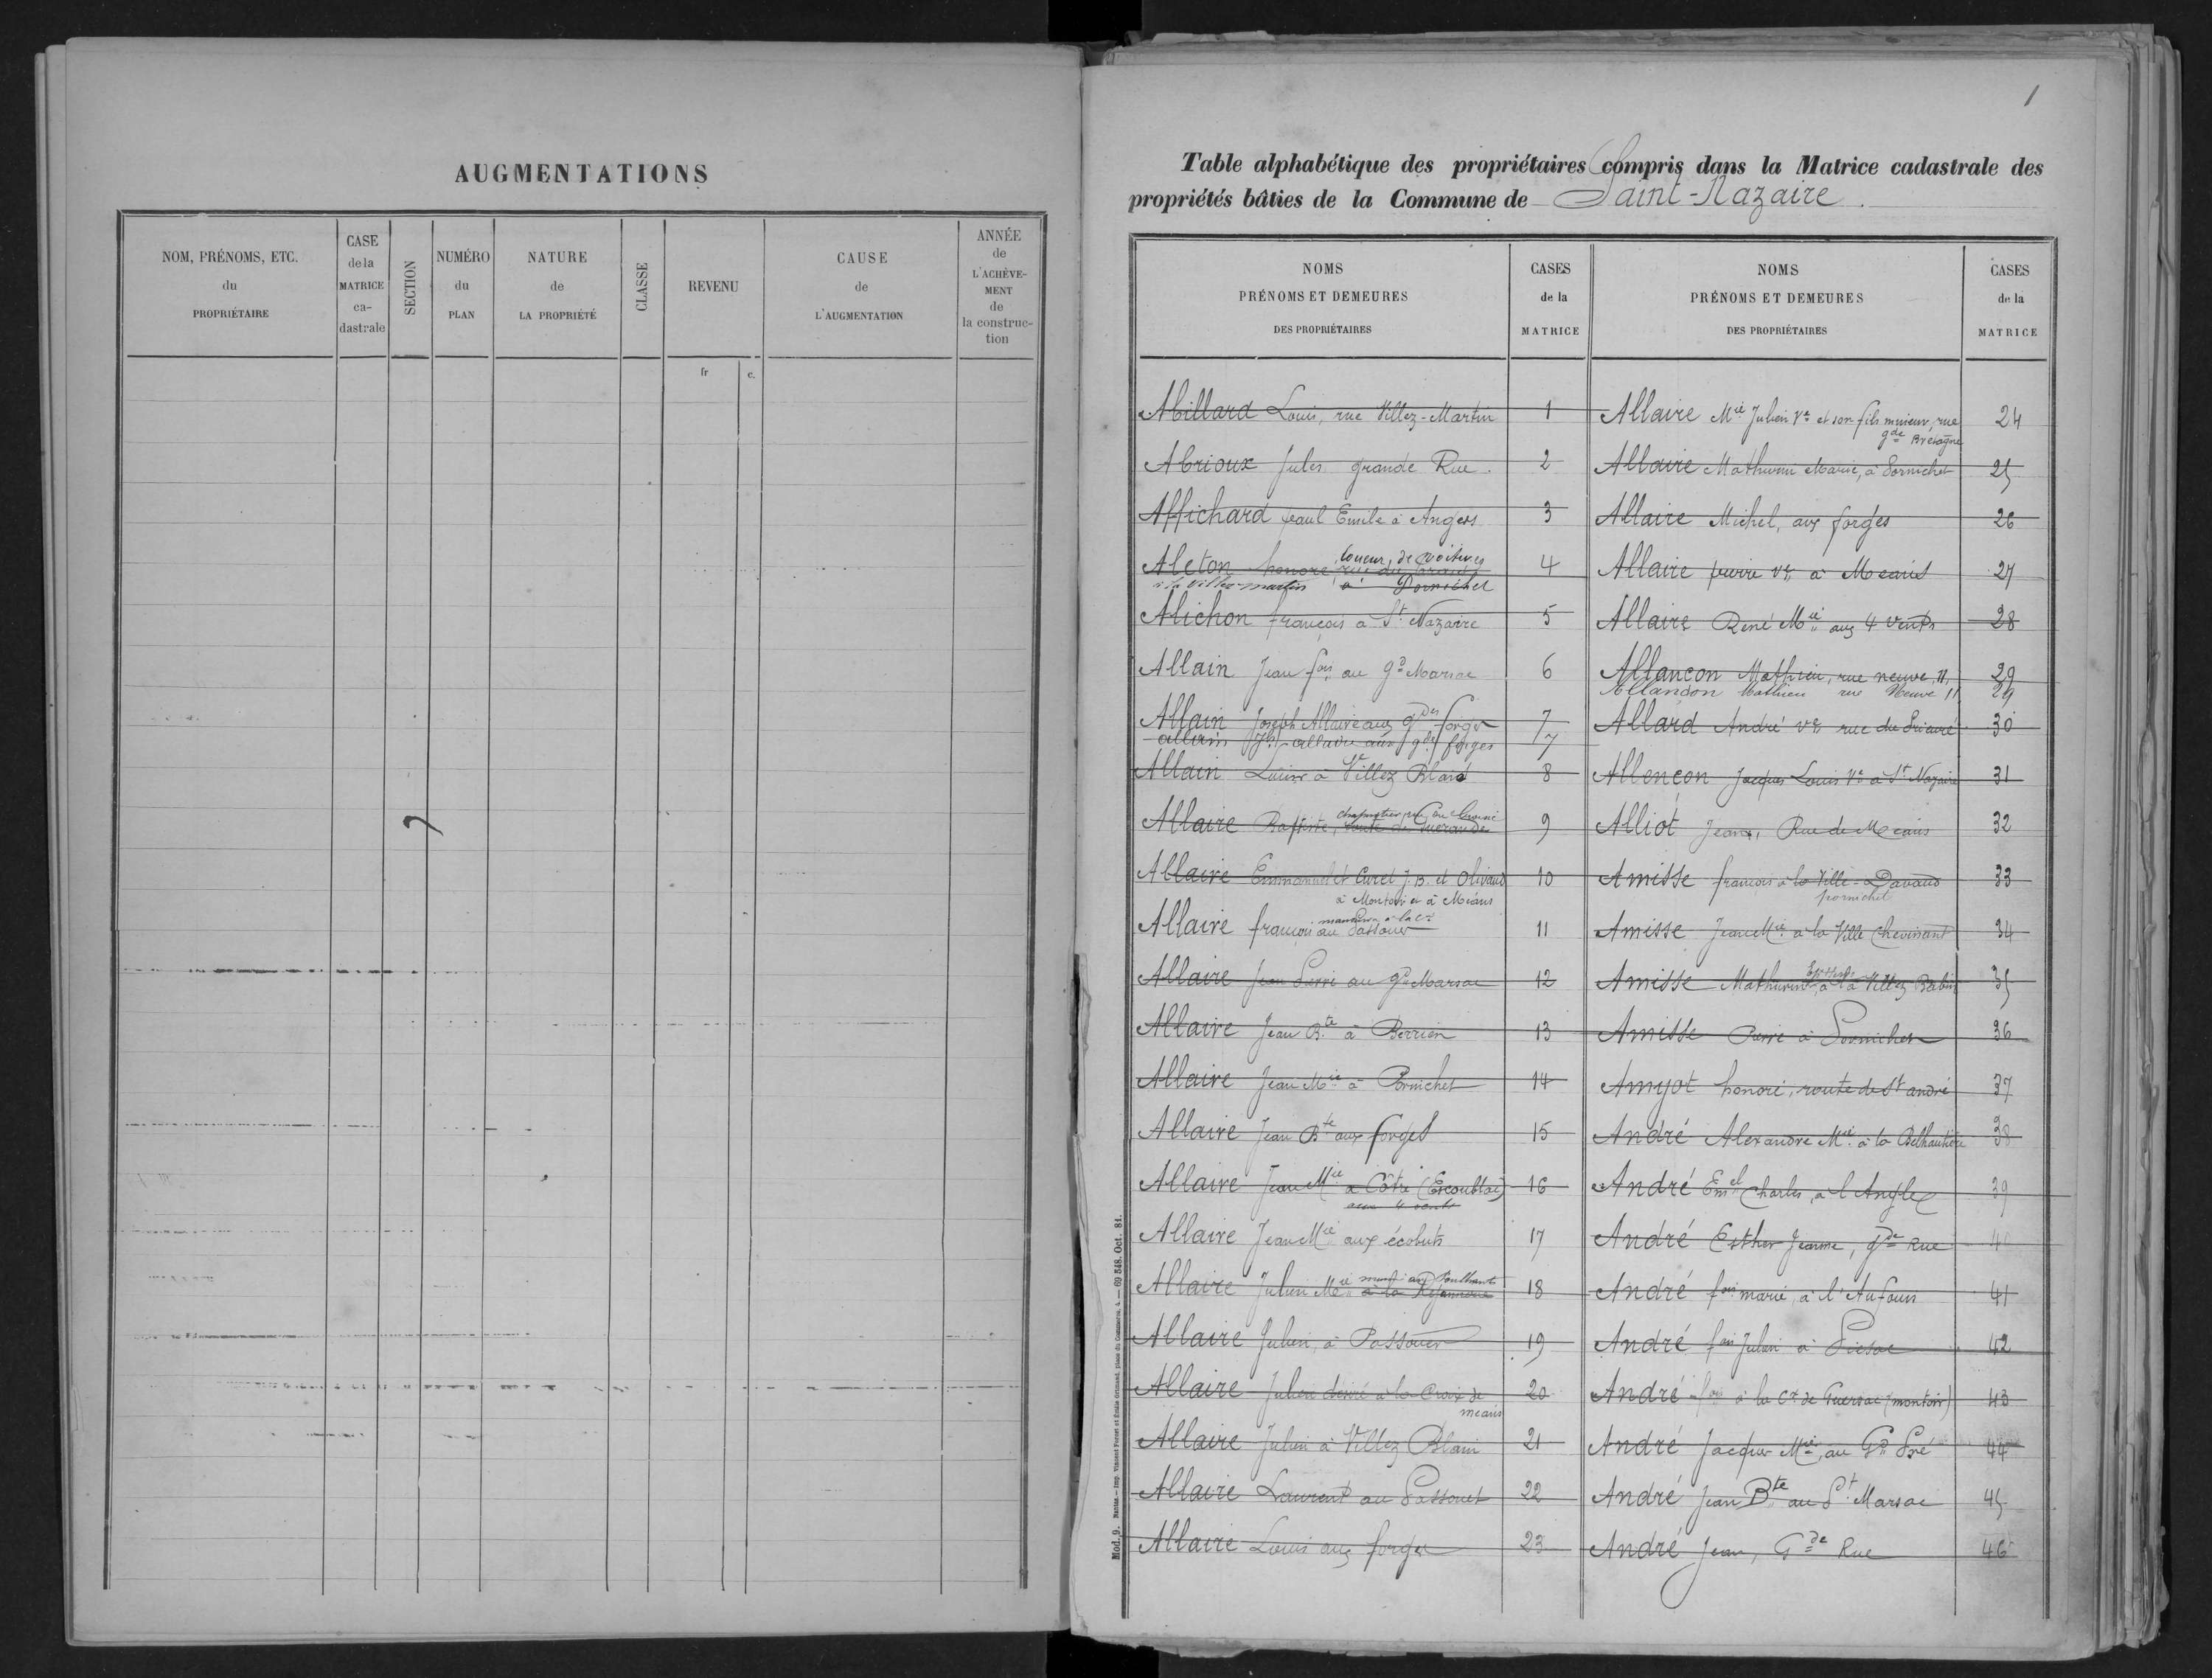 AUGMENTATIONS
NOM, PRÉNOMS, ETC.
du
PROPRIÉTAIRE
CASE
de la
MATRICE
ca-
dastrale
SECTION
NUMÉRO
du
PLAN
NATURE
de
LA PROPRIÉTÉ
CLASSE
REVENU
fr c.
CAUSE
de
L'AUGMENTATION
ANNÉE
de
L'ACHÈVE-
MENT
de
la construc-
tion
1
Table alphabétique des propriétaires compris dans la Matrice cadastrale des
propriétés bâties de la Commune de Saint-Nazaire.
NOMS
PRÉNOMS ET DEMEURES
DES PROPRIÉTAIRES
CASES
de la
MATRICE
Abillard Louis, rue Villez-Martin 1
Abrioux Jules grande Rue. 2
Affichard Paul Emile à Angers 3
loueur de voitures
Aleton honoré 4
à la Villez-martin à Pornichet
Alichon françois à St Nazaire 5
Allain Jean fois au gd Marsac 6
Allain Joseph Allaire aux gdes forges 7
allain Jh allaire aux gdes forges 7
Allain Louise à Villez Blais 8
Allaire Baptiste, route de Guérande 9
Allaire Emmanuel et Curet J.B. et Olivaud 10
à Montoir et à Méans
Allaire françois au Passouer 11
Allaire Jean Pierre au gd Marsac 12
Allaire Jean Bte à Berrien 13
Allaire Jean Mie à Pornichet 14
Allaire Jean Bte aux forges 15
Allaire Jean Mie à Côtré (Escoublac) 16
aux 4 vents
Allaire Jean Mie aux écobuts 17
Allaire Julien Mie à la 18
Allaire Julien, à Passouer 19
Allaire Julien désiré à la Croix de 20
méans
Allaire Julien à Villez Blain 21
Allaire Laurent au Passouet 22
Allaire Louis aux forges 23
NOMS
PRÉNOMS ET DEMEURES
DES PROPRIÉTAIRES
CASES
de la
MATRICE
Allaire Mie Julien Ve et son fils mineur, rue 24
gde Bretagne
Allaire Mathurin Marie, à Pornichet 25
Allaire Michel, aux forges 26
Allaire pierre ve à Méans 27
Allaire René Mie aux 4 vents 28
Allancon Mathieu, rue neuve, 11, 29
Allandon Mathieu rue Neuve 11 29
Allard André ve rue du Prieuré 30
Allençon Jacques Louis Ve à St Nazaire 31
Alliot Jean, Rue de Méans 32
Amisse françois à la Ville-Davaud 33
pornichet
Amisse Jean Mie à la Ville Chevissant 34
Amisse Mathurin, à Villez Babin 35
Amisse Pierre à Pornichet 36
Amyot honoré, route de St andré 37
André Alexandre Mie à la Belhautière 38
André Emel Charles, à l'Angle 39
André Esther Jeanne, gde Rue 40
André fois marie, à l'Aufoun 41
André fois Julien à Piesac 42
André fois à la Cx de Guersac (montoir) 43
André Jacques Mie, au Gd Pré 44
André Jean Bte au Pt Marsac 45
André Jean, Gde Rue 46
Mod. 9.